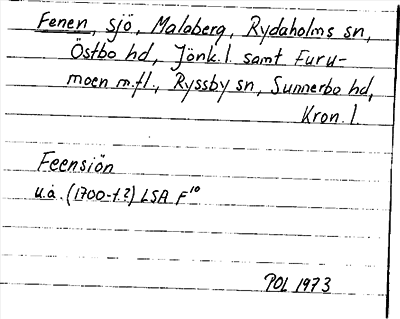 Fenen, sjö, Malaberg, Rydaholms sn,
Östbo hd, Jönk.l. samt Furu-
moen m.fl., Ryssby sn, Sunnerbo hd,
Kron.l.
Feensiön
u.å. (1700-t.?) LSA F¹⁰
POL 1973